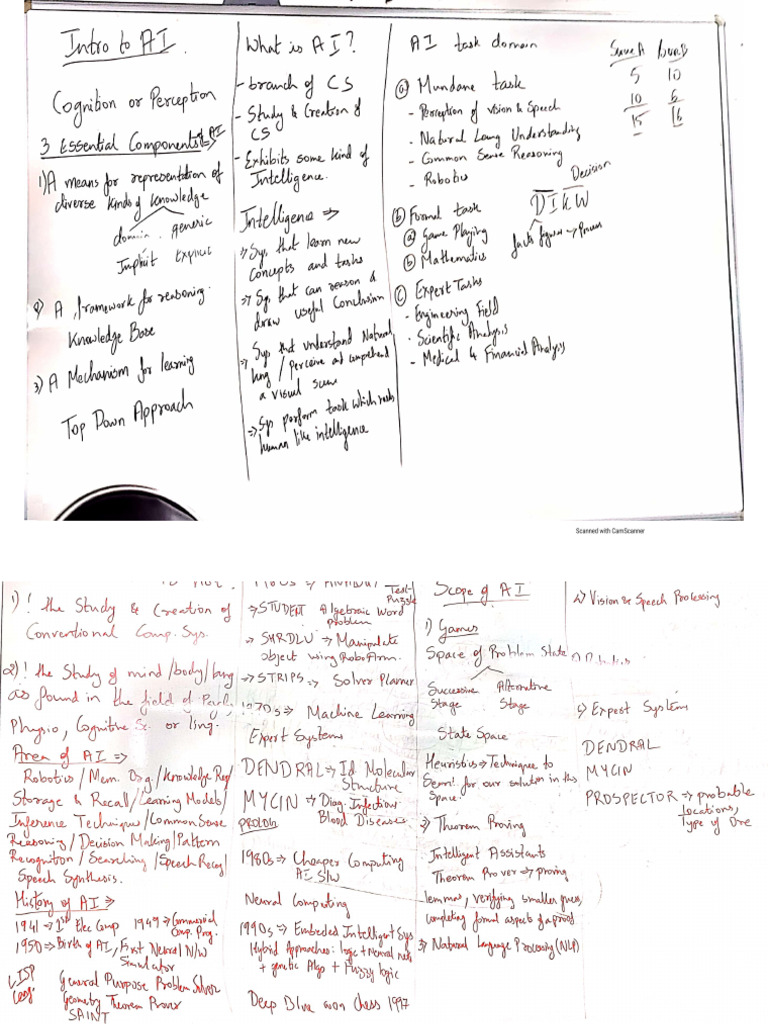 Intro to AI.
Cognition or Perception
3 Essential Components of AI
1) A means for representation of
diverse kinds of knowledge
domain generic
Implicit Explicit
2) A framework for reasoning.
Knowledge Base
3) A Mechanism for learning
Top Down Approach
What is AI?
- branch of CS
- Study & Creation of
CS
- Exhibits some kind of
Intelligence.
Intelligence ⇒
⇒ Sys. that learn new
concepts and tasks
⇒ Sys that can reason &
draw useful Conclusion
⇒ Sys that understand Natural
lang / perceive at comprehend
a visual
⇒ Sys perform task which
human like intelligence
AI task domain
(a) Mundane task
- Perception of vision & Speech
- Natural Lang Understanding
- Common Sense Reasoning
- Robotics
(b) Formal task
(a) Game Playing
(b) Mathematics
(c) Expert Tasks
- Engineering Field
- Scientific Analysis
- Medical & Financial Analysis
5 10
10 6
15 16
Decision
D I K W
facts figures →
Scanned with CamScanner
1) ! the Study & Creation of
Conventional Comp. Sys.
2) ! the Study of mind/body/lang
as found in the field of
Physio, Cognitive Sc. or ling.
Area of AI ⇒
Robotics / Mem. Org. / Knowledge Rep/
Storage & Recall / Learning Models/
Inference Technique / Common Sense
Reasoning / Decision Making / Pattern
Recognition / Searching / Speech Recog/
Speech Synthesis.
History of AI ⇒
1941 ⇒ 1st Elec Comp 1949 ⇒ Commercial
Comp. Prog.
1950 ⇒ Birth of AI / First Neural N/W
Simulator
LISP
General Purpose Problem Solver
Geometry Theorem Prover
SAINT
Test-
Puzzle
⇒ STUDENT Algebraic Word
Problem
⇒ SHRDLU ⇒ Manipulate
object using Robo Arm.
⇒ STRIPS ⇒ Solver Planner
1970s ⇒ Machine Learning
Expert Systems
DENDRAL ⇒ Id Molecular
Structure
MYCIN ⇒ Diag. Infectious
Blood Diseases
PROLOG
1980s ⇒ Cheaper Computing
AI S/W
Neural Computing
1990s ⇒ Embeded Intelligent Sys
Hybrid Approaches: logic + Neural nets
+ genetic Algo + Fuzzy logic
Deep Blue won Chess 1997
Scope of AI
1) Games
Space of Problem State
Successive Alternative
Stage Stage
State Space
Heuristics ⇒ Technique to
for our solution in the
Space.
2) Theorem Proving
Intelligent Assistants
Theorem Prover ⇒ proving
lemmas, verifying smaller
completing formal aspects of a proof
3) Natural Language Processing (NLP)
4) Vision & Speech Processing
⇒ Expert Systems
DENDRAL
MYCIN
PROSPECTOR ⇒ probable
locations,
Type of Ore